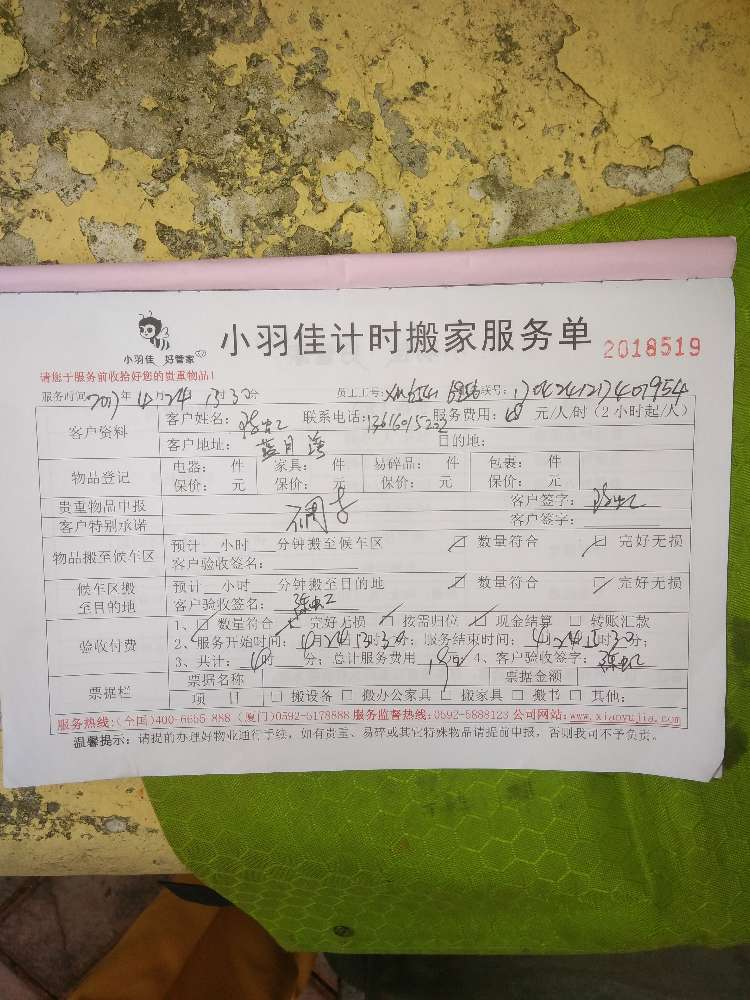 小羽佳 好管家
小羽佳计时搬家服务单
2018519
请您于服务前收拾好您的贵重物品！
服务时间：2017年4月24日13时30分 员工工号： 联号：
客户资料
客户姓名： 联系电话： 服务费用： 元/人/时（2小时起/人）
客户地址：蓝月湾 目的地：
物品登记
电器： 件 家具： 件 易碎品： 件 包裹： 件
保价： 元 保价： 元 保价： 元 保价： 元
贵重物品申报 客户签字：
客户特别承诺 客户签字：
物品搬至候车区
预计 小时 分钟搬至候车区 数量符合 完好无损
客户验收签名：
候车区搬至目的地
预计 小时 分钟搬至目的地 数量符合 完好无损
客户验收签名：
验收付费
1、 数量符合 完好无损 按需归位 现金结算 转账汇款
2、服务开始时间：4月24日13时30分；服务结束时间：4月24日 时30分；
3、共计： 时 分；总计服务费用 元 4、客户验收签字：
票据栏
票据名称 票据金额
项 目 搬设备 搬办公家具 搬家具 搬书 其他：
服务热线：(全国)400-6666-888 (厦门)0592-5178888 服务监督热线：0592-5888123 公司网站：www.xiaoyujia.com
温馨提示：请提前办理好物业通行手续，如有贵重、易碎或其它特殊物品请提前申报，否则我司不予负责。